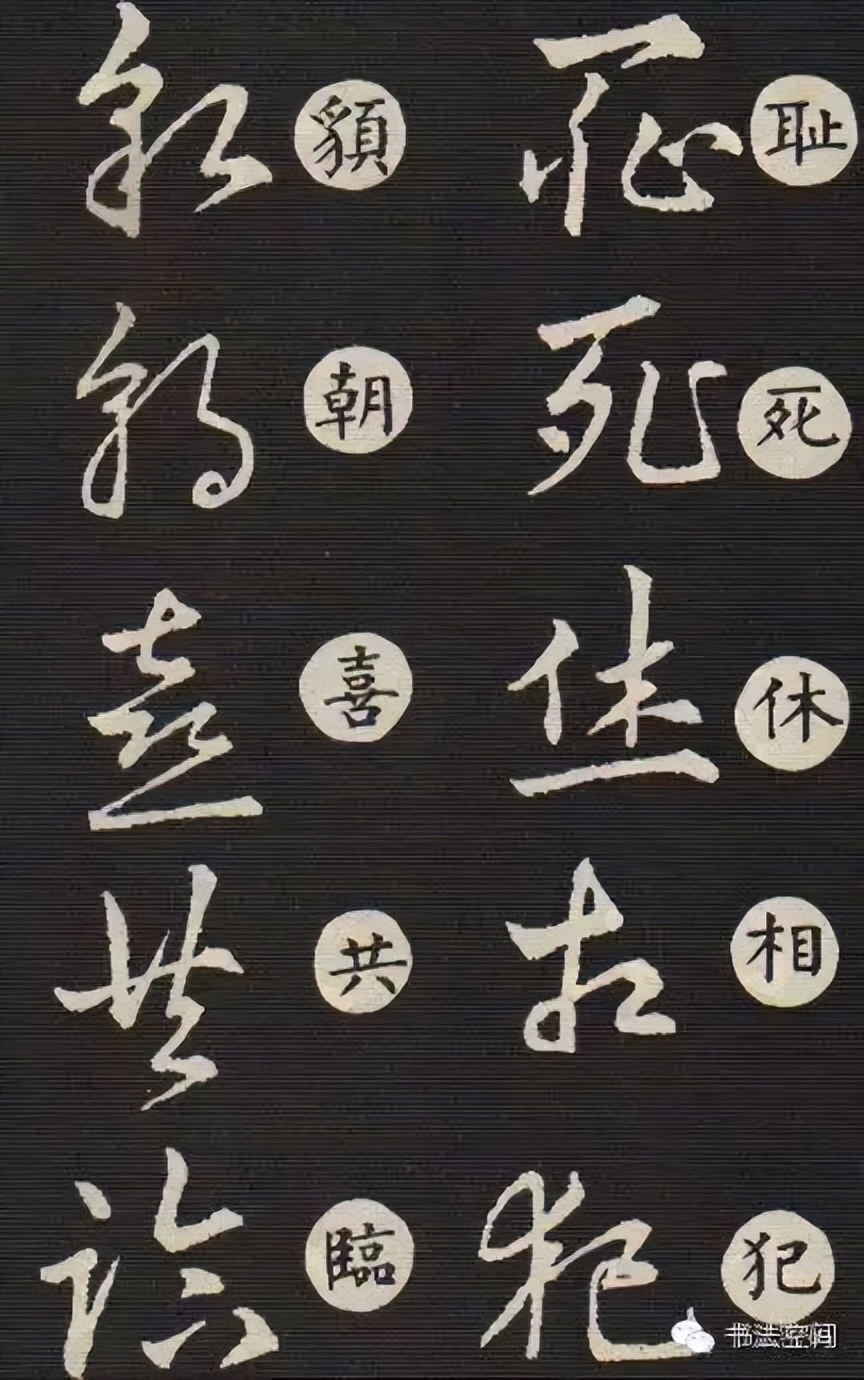 耻死休相犯
耻死休相犯
䫉朝喜共臨
䫉朝喜共臨
书法空间